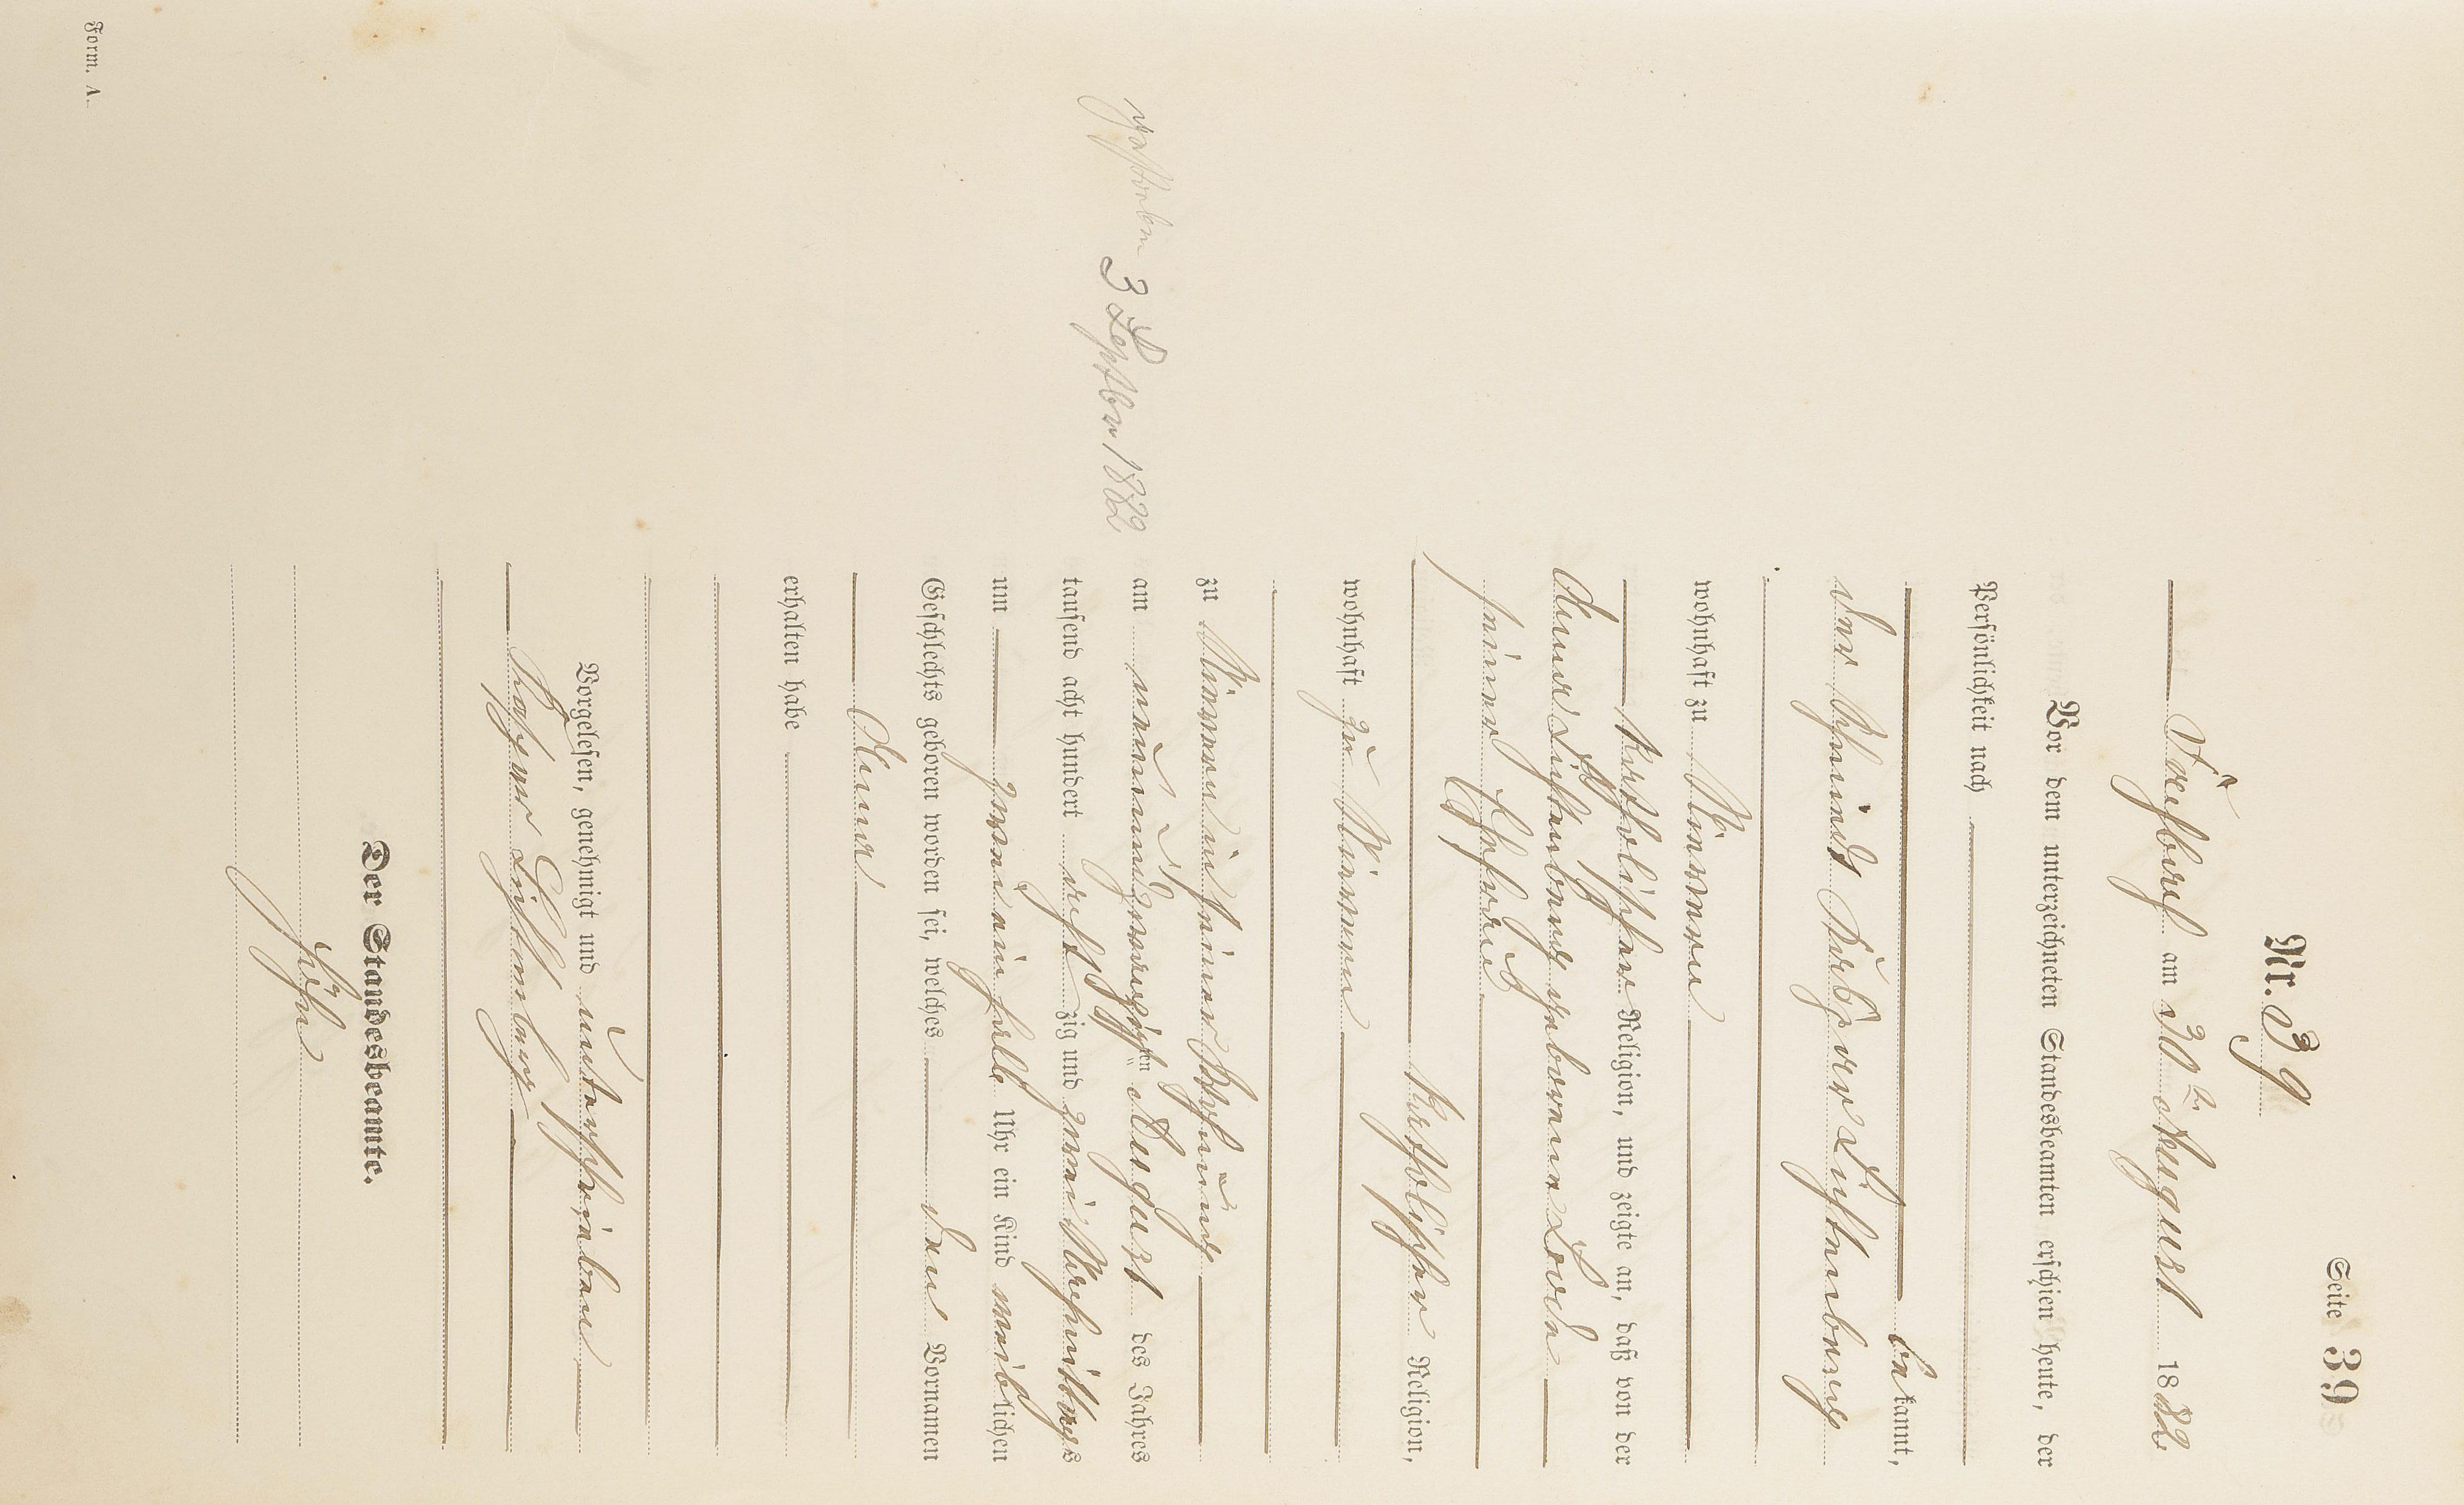 Seite 39
Nr. 39
am 30ten August 1882
Vor dem unterzeichneten Standesbeamten erschien heute, der
Persönlichkeit nach
bekannt,
der Schmidt Kaspar Lichtenberg
wohnhaft zu
katholischer Religion, und zeigte an, daß von der
Anna Lichtenberg geborene
seiner Ehefrau
katholischer Religion,
wohnhaft zu
zu in seiner Wohnung
am neunundzwanzigsten August des Jahres
tausend acht hundert achtzig und zwei Nachmittags
um zwei ein halb Uhr ein Kind weiblichen
Geschlechts geboren worden sei, welches den Vornamen
Anna
erhalten habe
gestorben 3 Septber 1882
Vorgelesen, genehmigt und unterschrieben
Kaspar Lichtenberg
Der Standesbeamte.
Form. A.